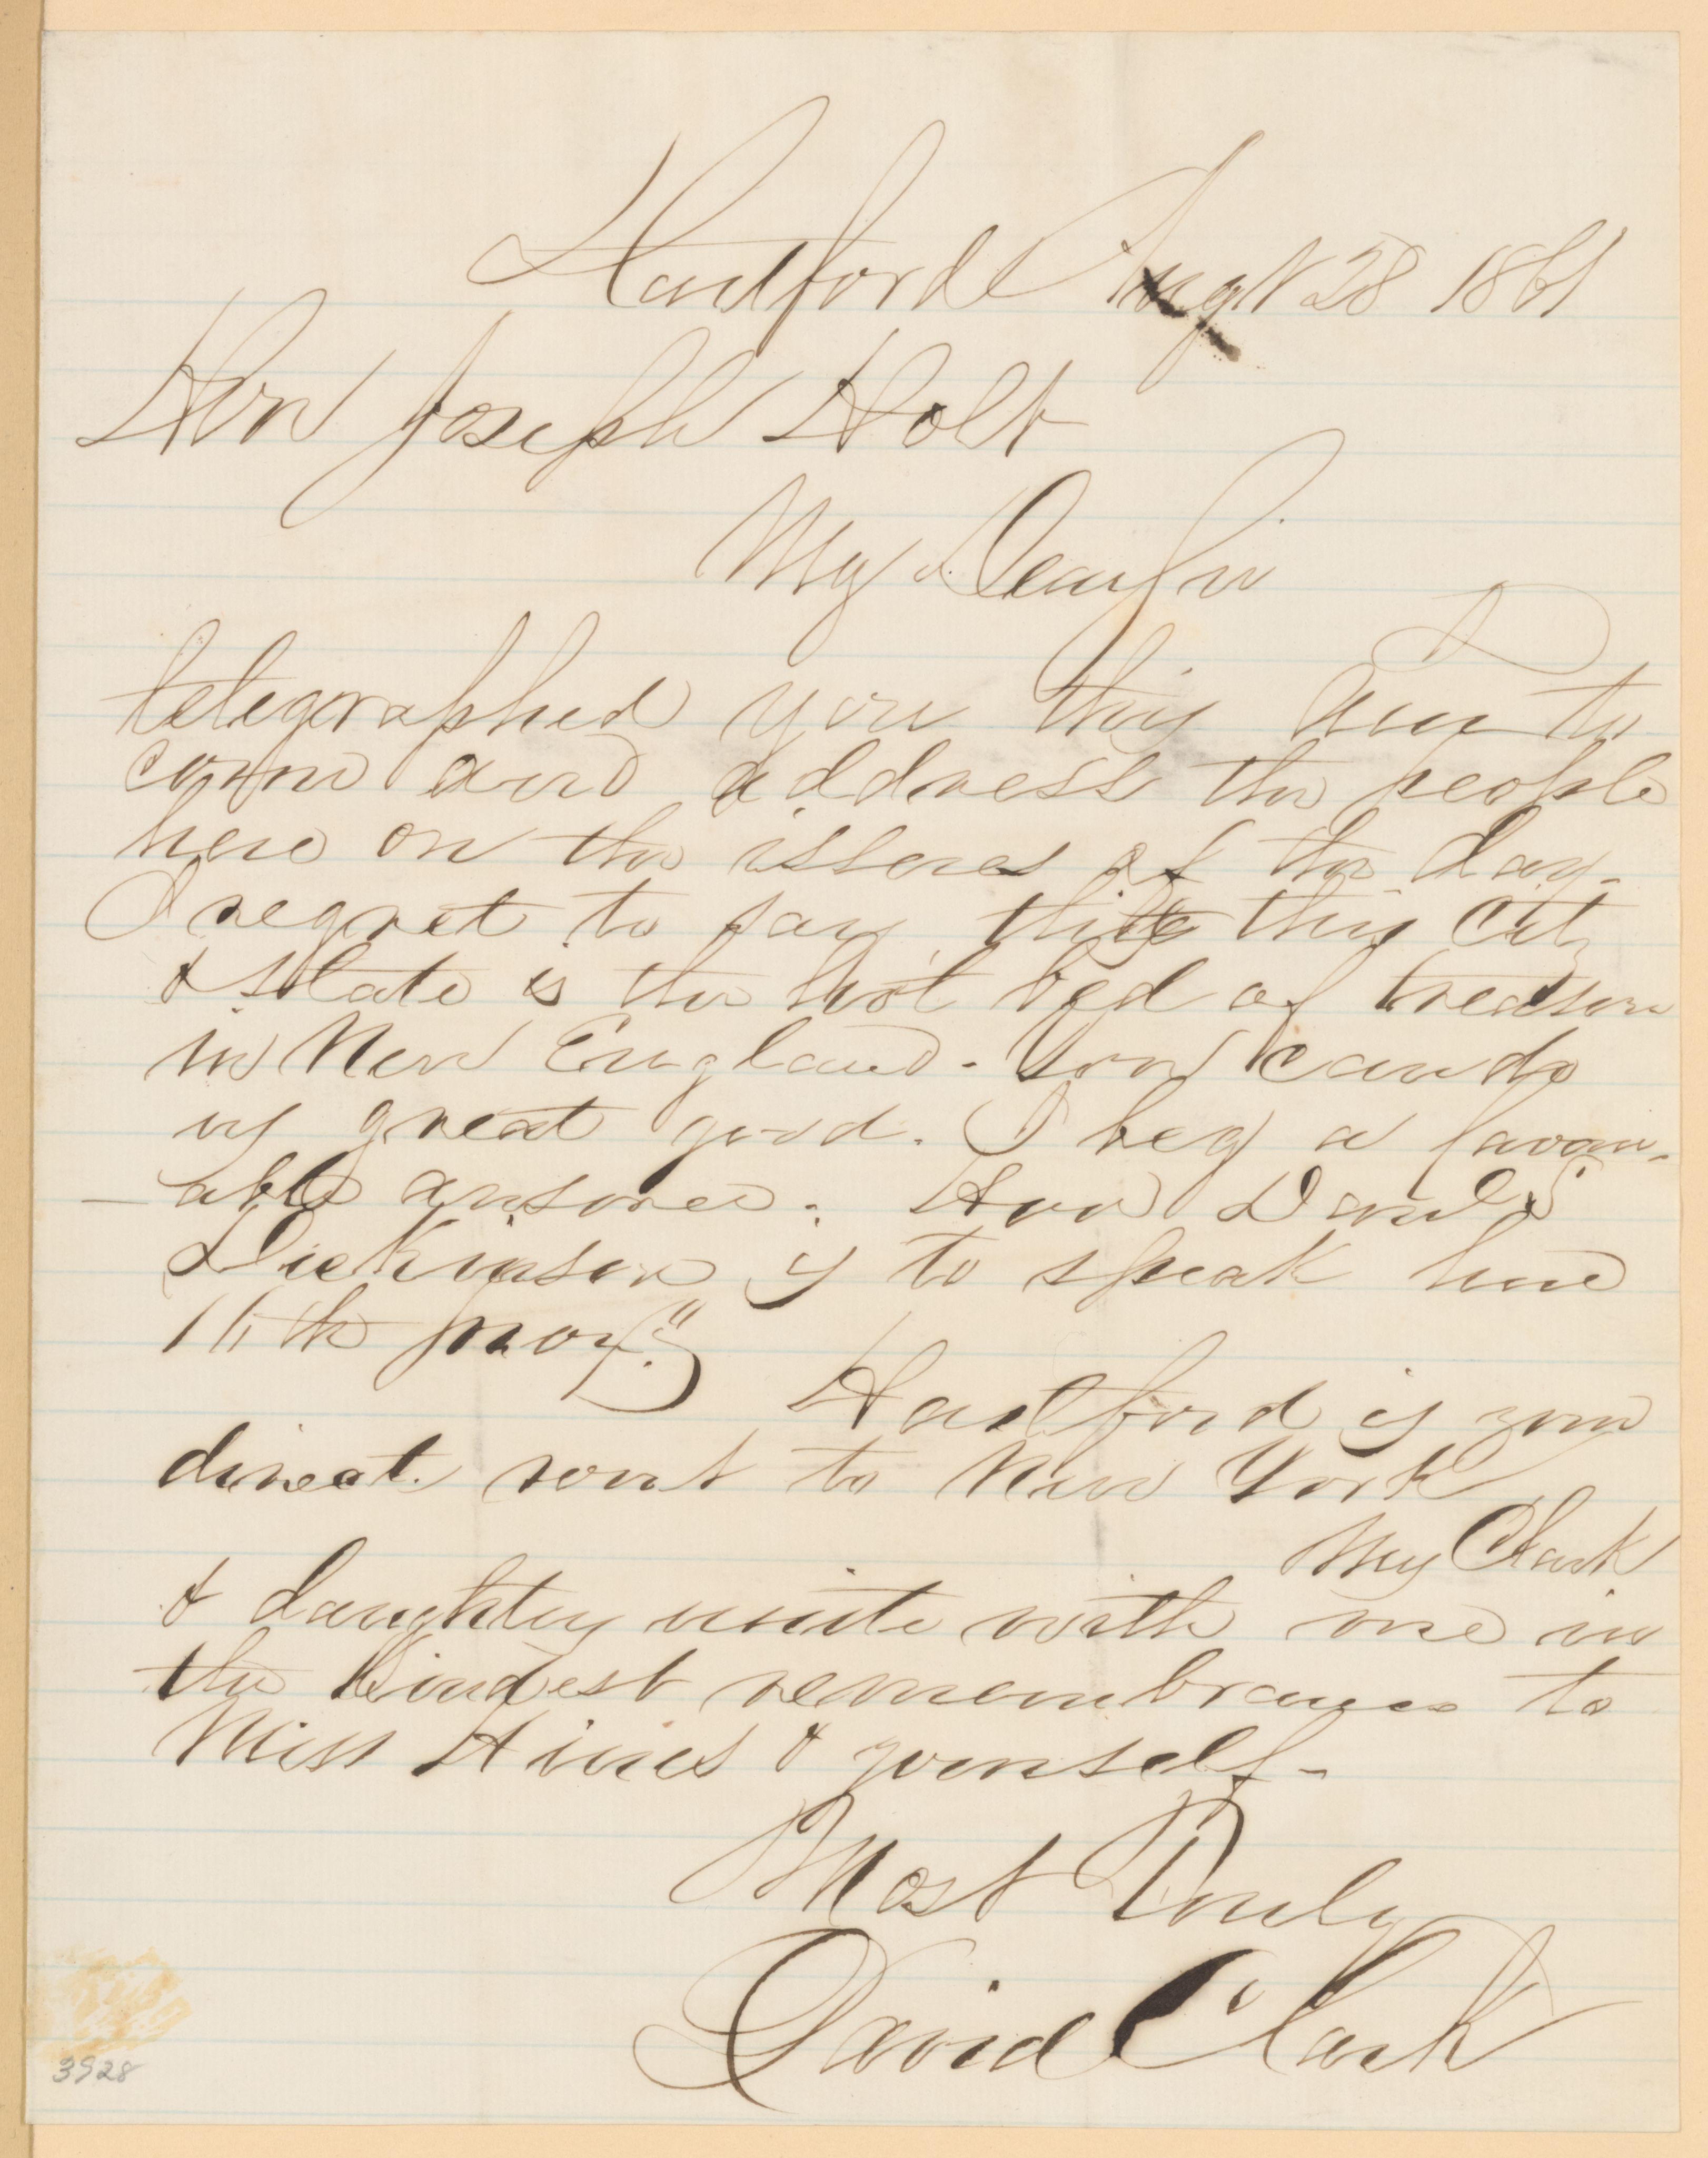 Hartford Augt 28 1861
Hon Joseph Holt
My Dear Sir
I
telegraphed you this to
come and address the people
here on the issues of the day.
I regret to say this City
& State is the hot bed of treason
in New England. You can do
us great good. I beg a favor-
-able answer. Hon Danl S
Dickinson is to speak here
prox.
Hartford is your
direct rout to New York
Mrs Clark
& daughters unite with me in
the kindest remembrances to
Miss Hines & yourself-
Most Truly
David Clark
3928